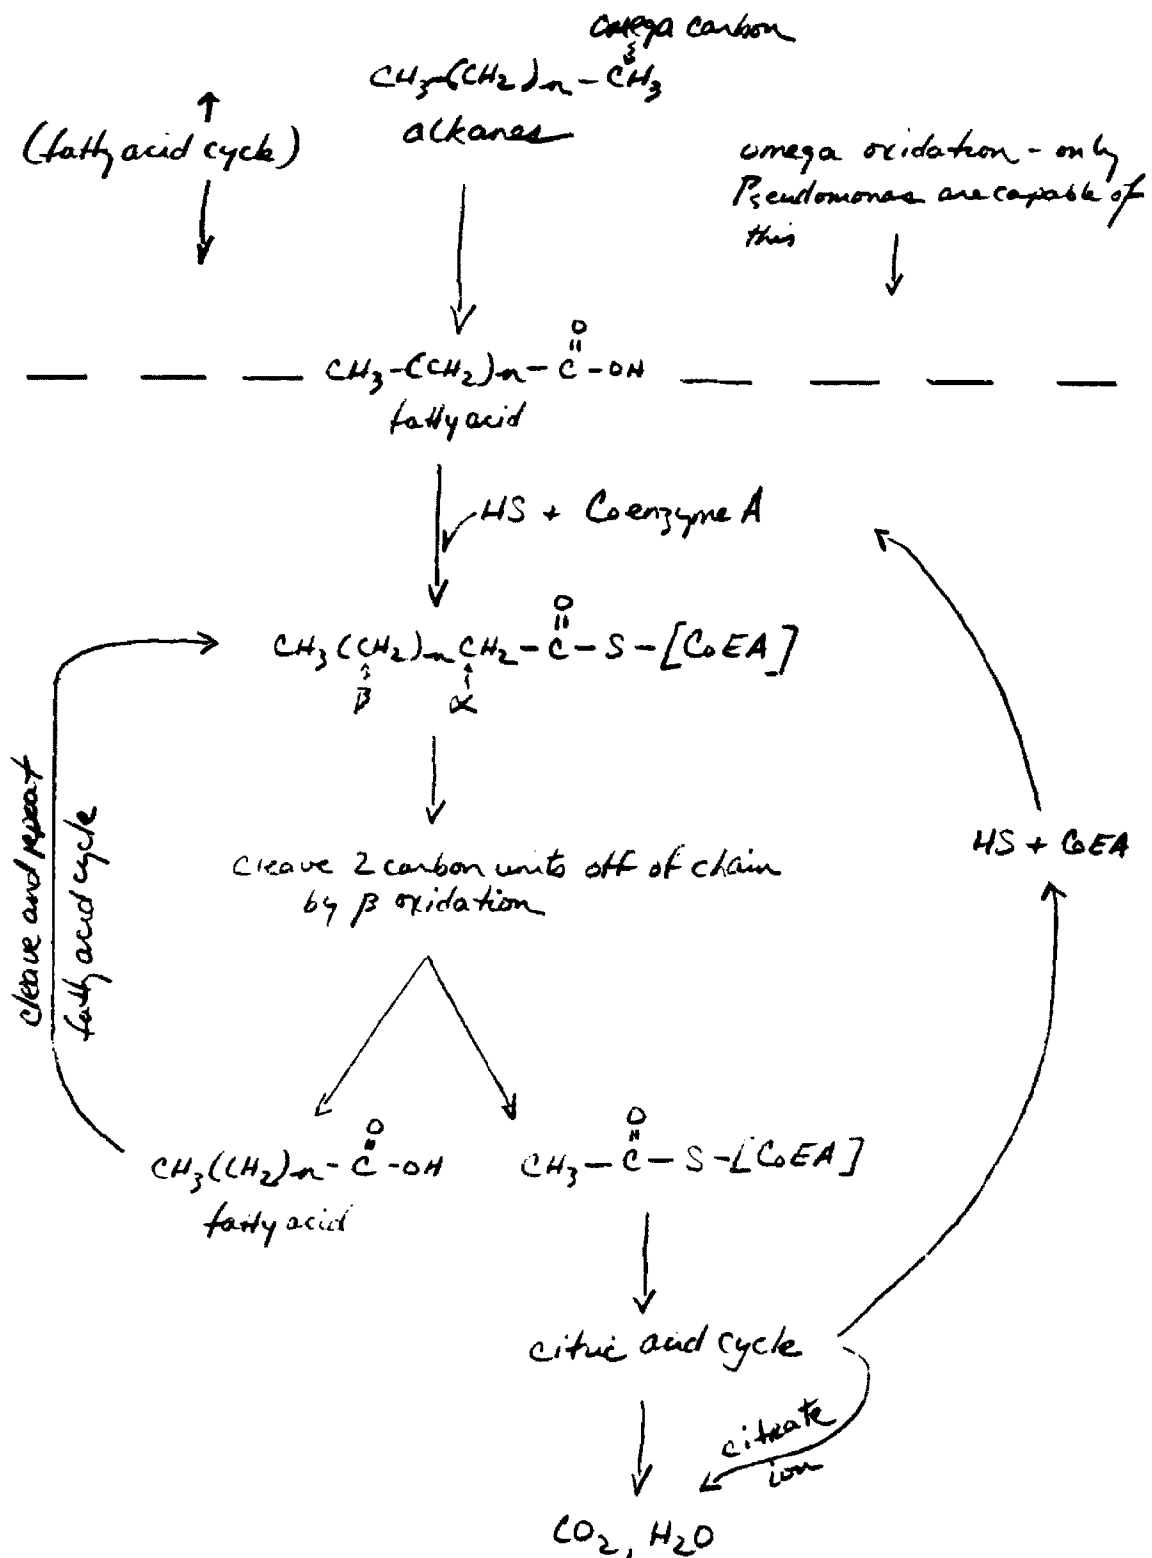 omega carbon
CH₃-(CH₂)n-CH₃
alkanes
(fatty acid cycle)
omega oxidation - only
Pseudomonas are capable of
this
O
CH₃-(CH₂)n-C-OH
fatty acid
HS + Coenzyme A
O
CH₃(CH₂)nCH₂-C-S-[CoEA]
β α
cleave 2 carbon units off of chain
by β oxidation
cleave and repeat
fatty acid cycle
HS + CoEA
O
CH₃(CH₂)n-C-OH
fatty acid
O
CH₃-C-S-[CoEA]
citric acid cycle
citrate
ion
CO₂, H₂O